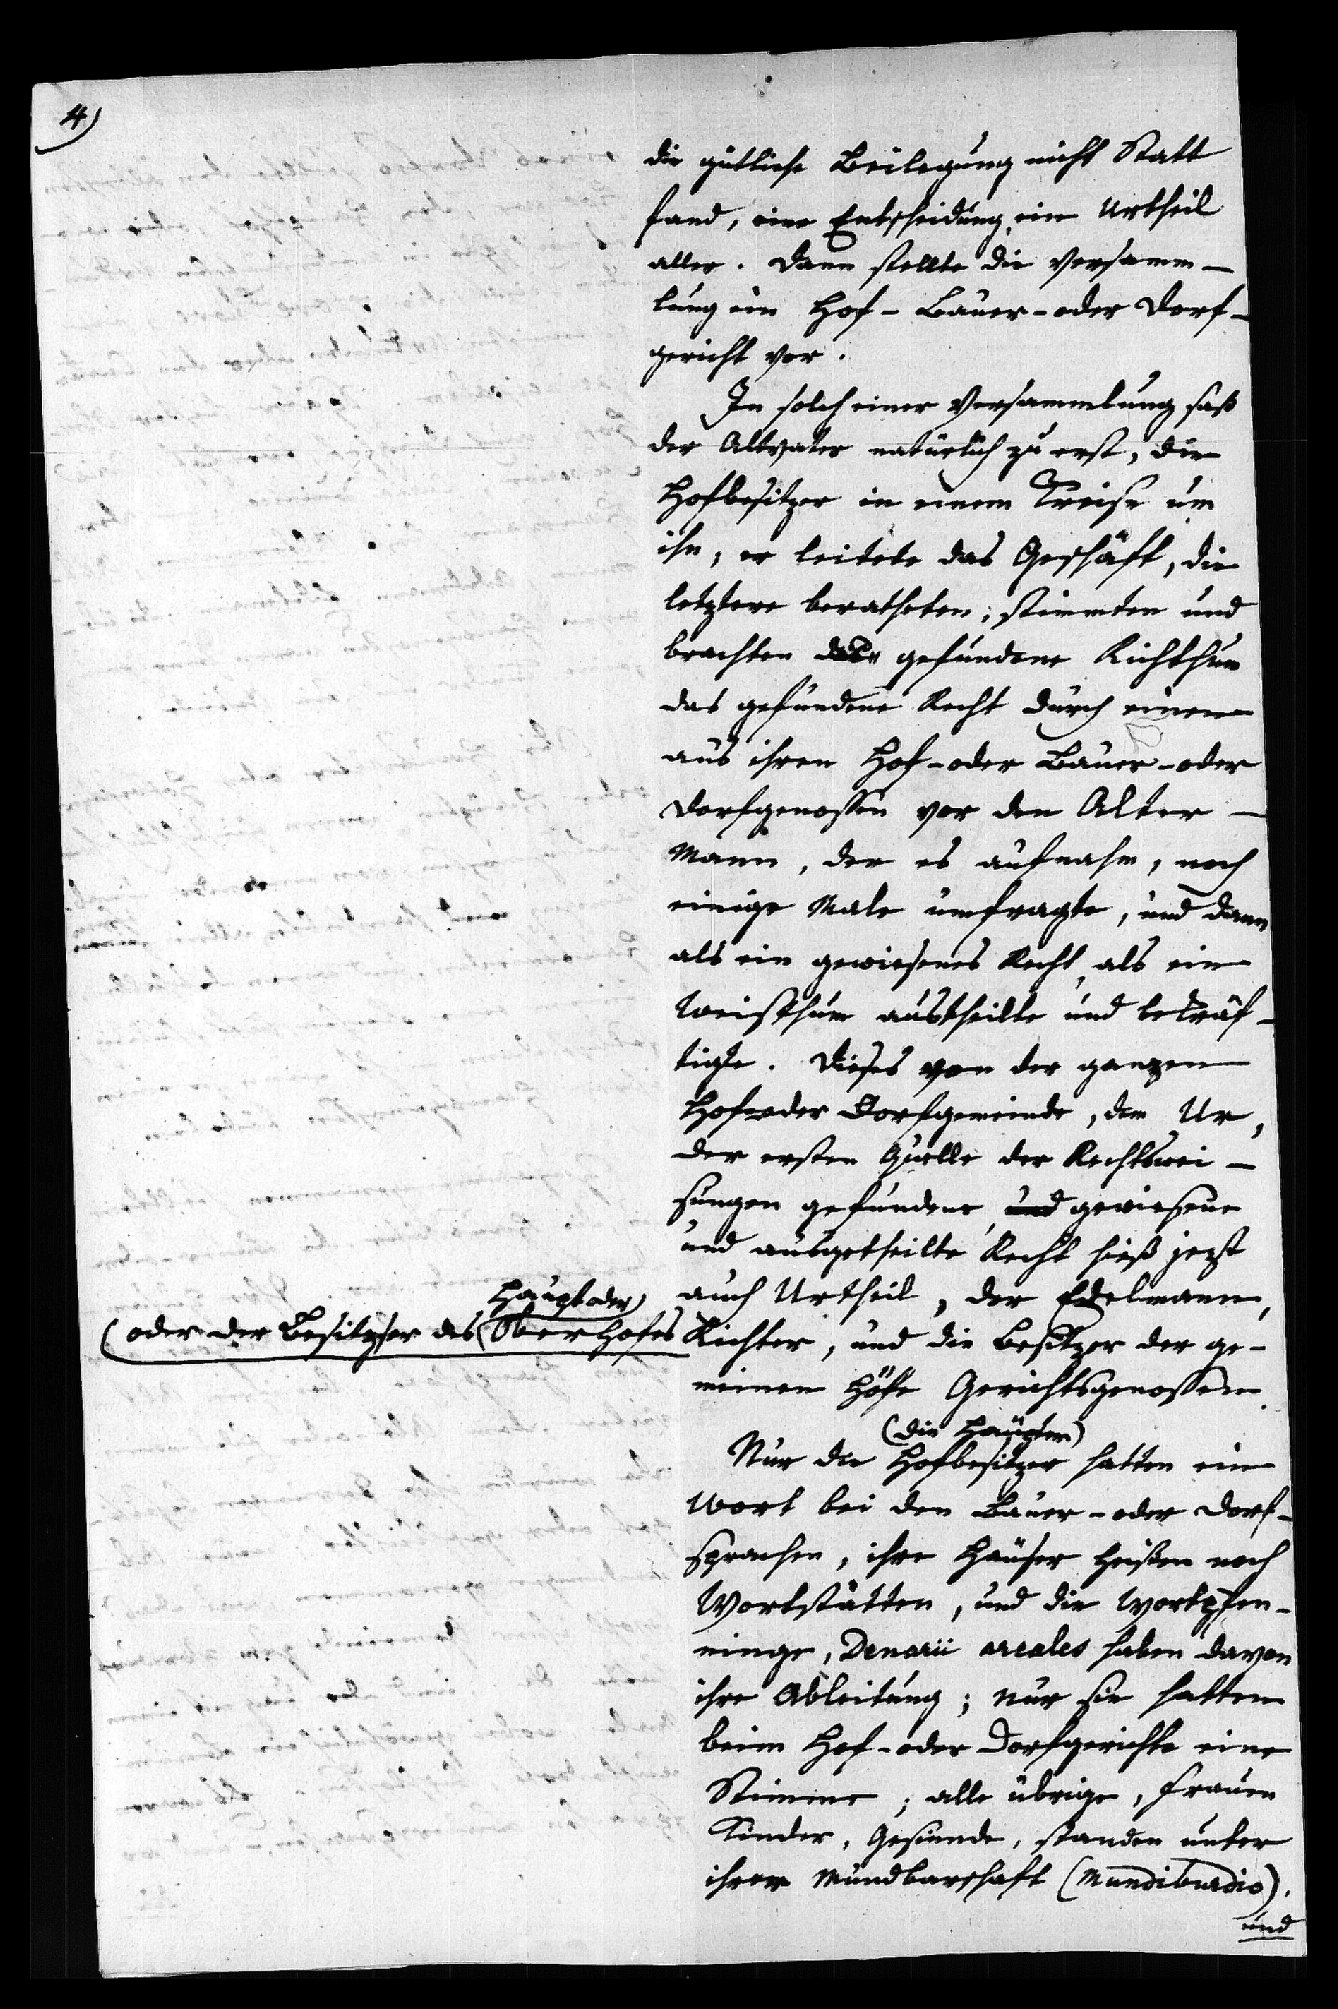 4)
die gütliche Beilegung nicht Statt
fand, eine Entscheidung, ein Urtheil
aller. Dann stellte die Versamm-
lung ein Hof- Bauer- oder Dorf-
gericht vor.
In solch einer Versammlung saß
der Altvater natürlich zu erst, die
Hofbesitzer in einem Kreise um
ihn, er leitete das Geschäft, die
letztere beratheten, stimmten und
brachten das gefundene Richthum
das gefundene Recht durch einen
aus ihren Hof- oder Bauer- oder
Dorfgenossen vor den Alter-
Mann, der es aufnahm, noch
einige Male umfragte, und dann
als ein gewiesenes Recht, als ein
Weisthum austheilte und bekräf-
tigte. Dieses von der ganzen
Hof oder Dorfgemeinde, dem Ur,
der ersten Quelle der Rechtswei-
sungen gefundene, und gewiesene
und ausgetheilte Recht hieß jezt
auch Urtheil, der Edelmann,
Haupt oder)
(oder der Besitzer des (Oberhofes
Richter, und die Besitzer der ge-
meinen Höfe Gerichtsgenossen.
(die Häupter)
Nur die Hofbesitzer hatten ein
Wort bei den Bauer- oder Dorf-
sprachen, ihre Häuser heißen noch
Wortstätten, und die Wortpfen-
ninge, Denarii areales haben davon
ihre Ableitung; nur sie hatten
beim Hof- oder Dorfgerichte eine
Stimme; alle übrige, Frauen
Kinder, Gesinde, standen unter
ihrer Mundbarschaft (Mundiburdio).
und